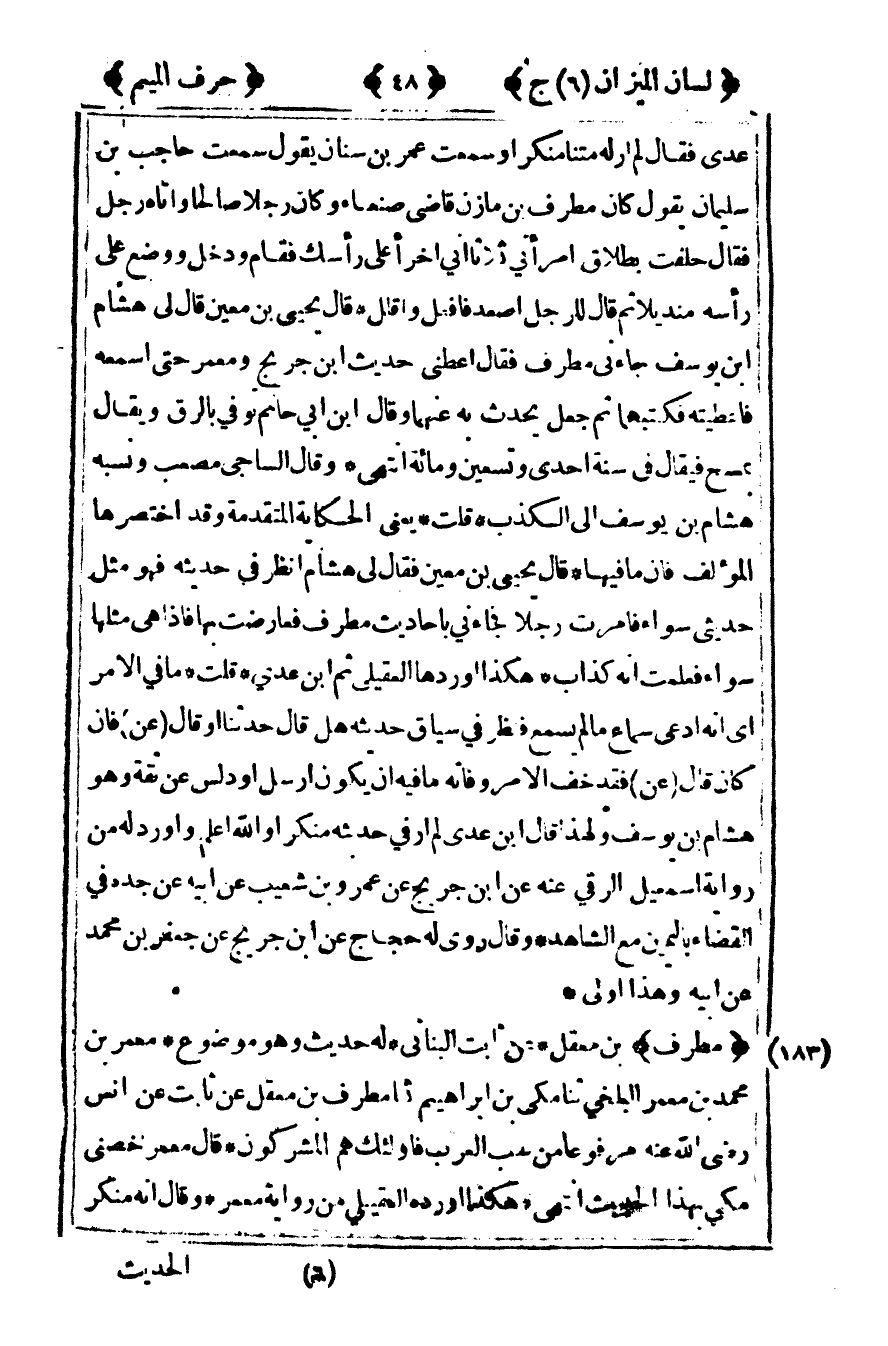 ﴿ لسان الميزان (٦) ج ﴾ ﴿ ٤٨ ﴾ ﴿ حرف الميم ﴾
عدى فقال لم ار له متنا منكرا وسمعت عمر بن سنان يقول سمعت حاجب بن
سليمان يقول كان مطرف بن مازن قاضى صنعاء وكان رجلا صالحا واتاه رجل
فقال حلفت بطلاق امرأتي ثلاثا اني اخرأ على رأسك فقام ودخل ووضع على
رأسه منديلا ثم قال للرجل اصعد فافعل واقلل * قال يحيى بن معين قال لى هشام
ابن يوسف جاءنى مطرف فقال اعطنى حديث ابن جريج ومعمر حتى اسمعه
فاعطيته فكتبها ثم جعل يحدث به عنهما وقال ابن ابي حاتم توفي بالرق ويقال
بمنبج فيقال فى سنة احدى وتسعين ومائة انتهى * وقال الساجى مصعب ونسبه
هشام بن يوسف الى الكذب * قلت * يعنى الحكاية المتقدمة وقد اختصرها
المؤلف فان ما فيها * قال يحيى بن معين فقال لى هشام انظر في حديثه فهو مثل
حديثى سواء فامرت رجلا فجاءني باحاديث مطرف فعارضت بها فاذا هى مثلها
سواء فعلمت انه كذاب * هكذا اوردها العقيلى ثم ابن عدي * قلت * ما في الامر
اى انه ادعى سماع ما لم يسمع فنظر في سياق حديثه هل قال حدثنا او قال (عن) فان
كان قال (عن) فقد خف الامر وفانه ما فيه ان يكون ارسل او دلس عن ثقة وهو
هشام بن يوسف ولهذا قال ابن عدى لم ار في حديثه منكرا والله اعلم واورد له من
رواية اسمعيل الرقي عنه عن ابن جريج عن عمرو بن شعيب عن ابيه عن جده في
القضاء باليمين مع الشاهد * وقال روى له حجاج عن ابن جريج عن جعفر بن محمد
عن ابيه وهذا اولى *
(١٨٣) ﴿ مطرف ﴾ بن معقل * عن ثابت البنانى * له حديث وهو موضوع * معمر بن
محمد بن معمر البلخي ثنا مكى بن ابراهيم ثنا مطرف بن معقل عن ثابت عن انس
رضى الله عنه مرفوعا من سب العرب فاولئك هم المشركون * قال معمر خصنى
مكي بهذا الحديث انتهى * هكذا اورده العقيلي من رواية معمر * وقال انه منكر
(٦) الحديث